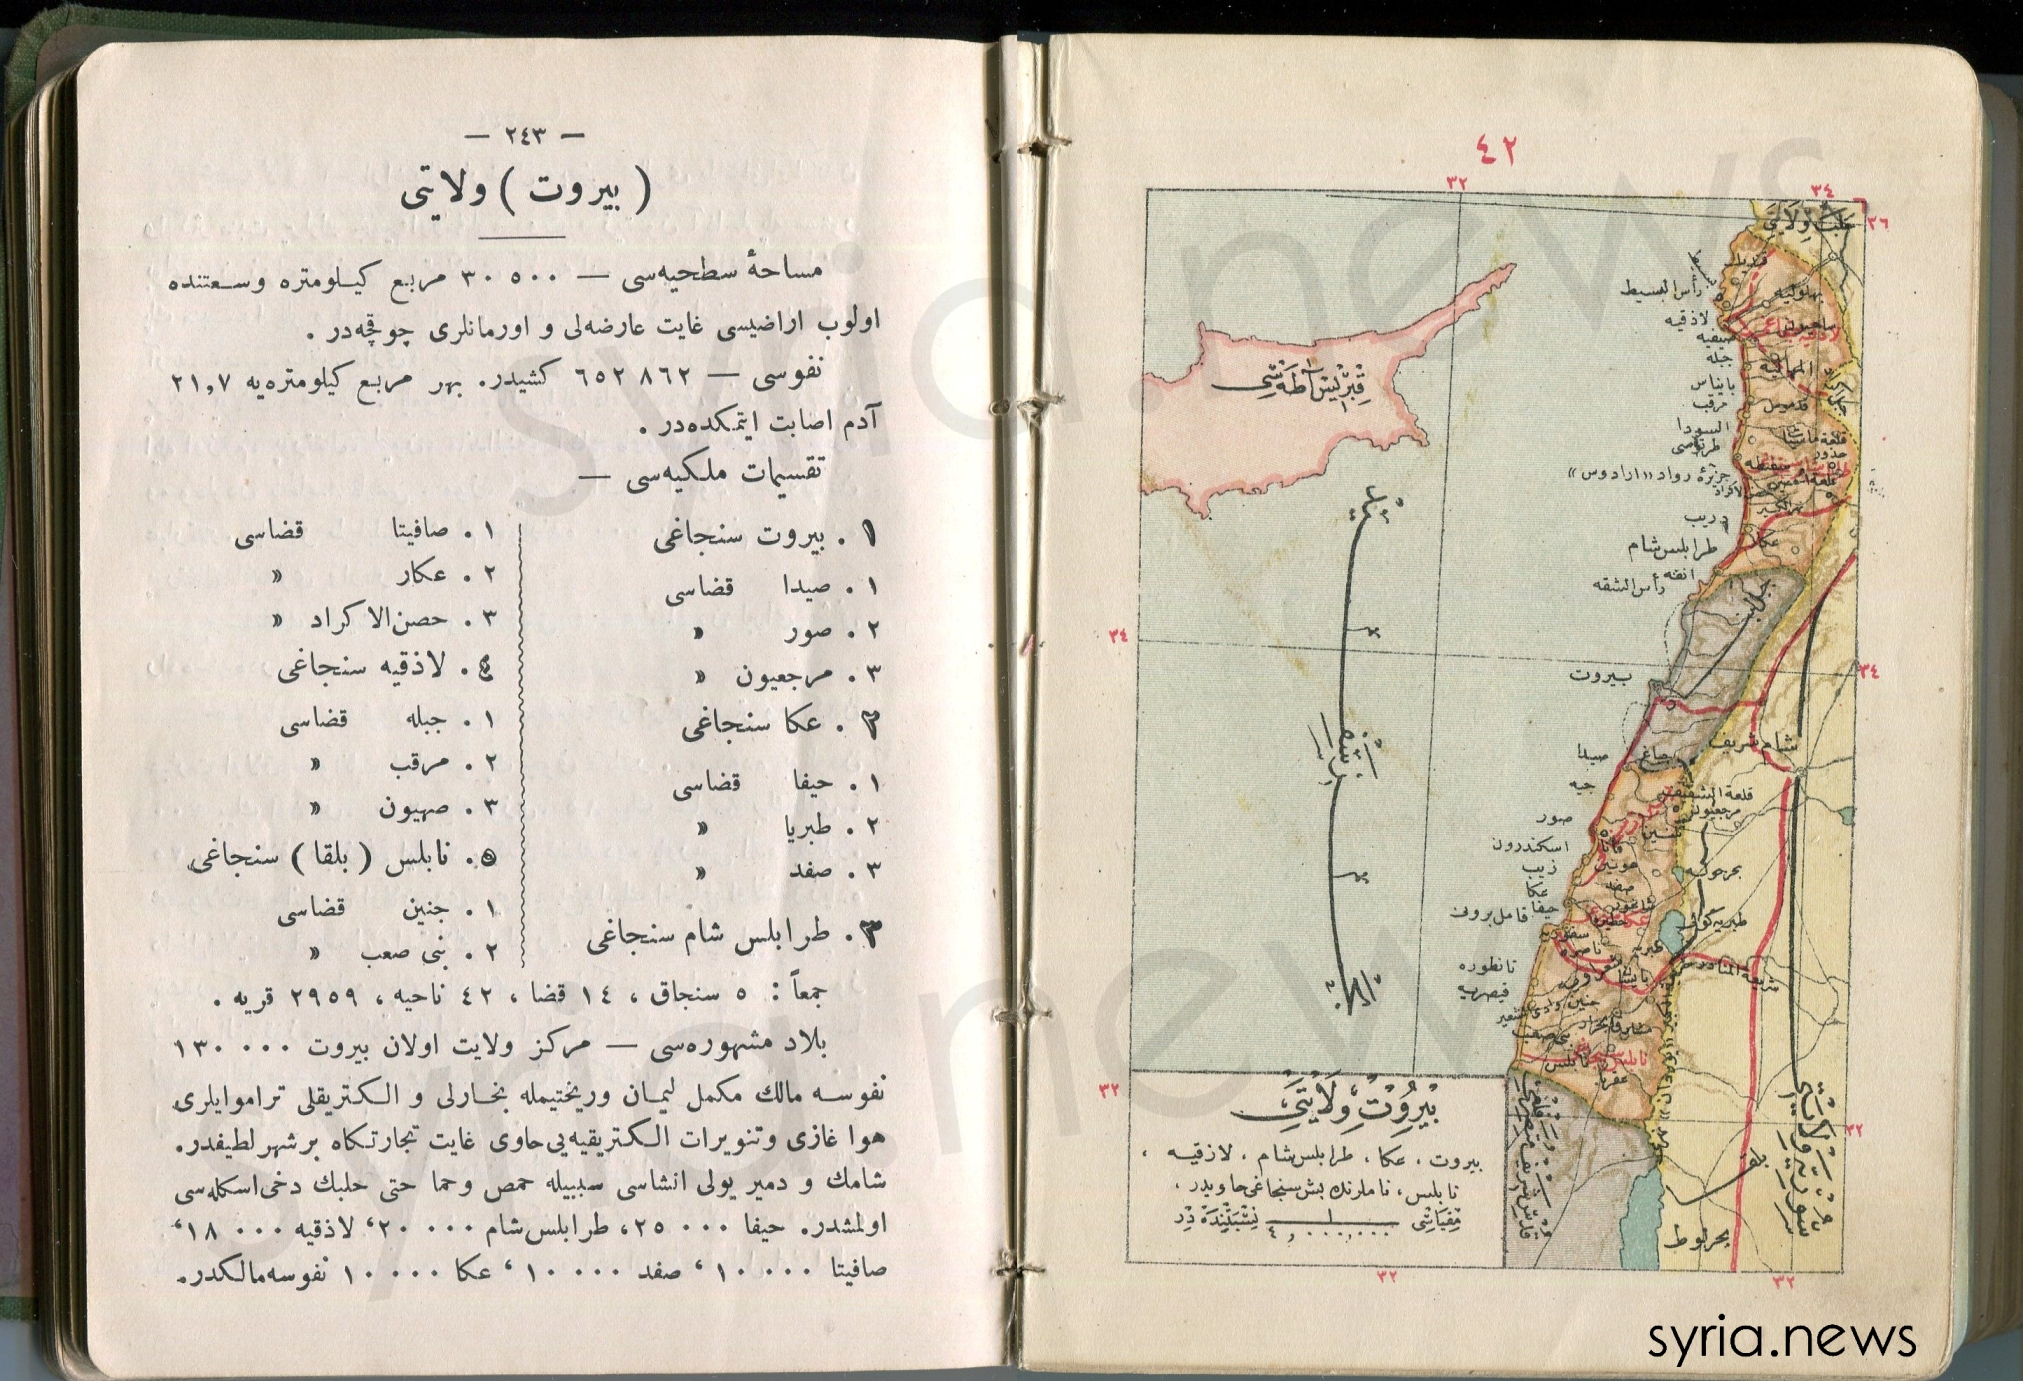 — ٢٤٣ —
( بیروت ) ولایتی
مساحهٔ سطحیه‌سی — ٣٠ ٥٠٠ مربع کیلومتره وسعتنده
اولوب اراضیسی غایت عارضه‌لی و اورمانلری چوقچه‌در .
نفوسی — ٦٥٢ ٨٦٢ کشیدر. بهر مربع کیلومتره‌یه ٢١,٧
آدم اصابت ایتمکده‌در .
تقسیمات ملکیه‌سی —
١ . بیروت سنجاغی
١ . صیدا قضاسی
٢ . صور »
٣ . مرجعیون »
٢ . عکا سنجاغی
١ . حیفا قضاسی
٢ . طبریا »
٣ . صفد »
٣ . طرابلس شام سنجاغی
١ . صافیتا قضاسی
٢ . عکار »
٣ . حصن‌الاکراد »
٤ . لاذقیه سنجاغی
١ . جبله قضاسی
٢ . مرقب »
٣ . صهیون »
٥ . نابلس ( بلقا ) سنجاغی
١ . جنین قضاسی
٢ . بنی صعب »
جمعاً : ٥ سنجاق ، ١٤ قضا ، ٤٢ ناحیه ، ٢٩٥٩ قریه .
بلاد مشهوره‌سی — مرکز ولایت اولان بیروت ١٣٠ ٠٠٠
نفوسه مالك مکمل لیمان وریختیمله بخارلی و الکتریقلی تراموایلری
هوا غازی وتنویرات الکتریقیه‌یی حاوی غایت تجارتکاه برشهر لطیفدر.
شامك و دمیر یولی انشاسی سببیله حمص وحما حتی حلبك دخی اسکله‌سی
اولمشدر. حیفا ٢٥ ٠٠٠، طرابلس‌شام ٢٠ ٠٠٠، لاذقیه ١٨ ٠٠٠،
صافیتا ١٠ ٠٠٠، صفد ١٠ ٠٠٠، عکا ١٠ ٠٠٠ نفوسه‌مالکدر.
٤٢
٣٢
٣٤
٣٦
حلب ولایتی
رأس البسیط
بهلولیه
لاذقیه
جبله
بانیاس
مرقب
قدموس
السودا
طرطوسی
جزیرهٔ رواد «ارادوس»
دریب
عکار
طرابلس‌شام
انفه
رأس الشقه
قبریس آطه‌سی
٣٤
٣٤
جبل لبنان
بیروت
شام شریف
صیدا
جیه
قلعة الشقیف
مرجعیون
صور
اسکندرون
زیب
عکا
حیفا
صفد
بحر حوله
ناصره
تانطوره
قیصریه
نابلس
شریعة المناذر
٣٢
٣٢
بیروت ولایتی
بیروت ، عکا ، طرابلس‌شام ، لاذقیه ،
نابلس، ناملرنده بش سنجاغی حاویدر ،
مقیاسی ١ ٤,٠٠٠,٠٠٠ نسبتنده در
سوریه ولایتی
قدس شریف
بحر لوط
٣٢
٣٢
syria.news
syria.news
syria.news